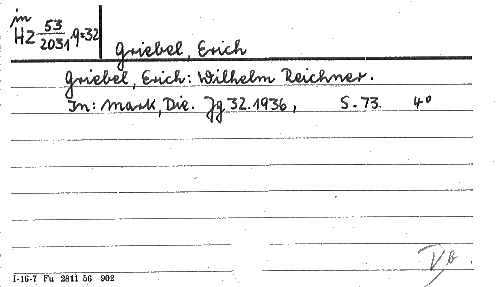 in
HZ 53/2031, 9=32
Griebel, Erich
Griebel, Erich: Wilhelm Reichner.
In: Mark, Die. Jg 32. 1936, S. 73. 4°
I-16-7 Fu 2811 56 902